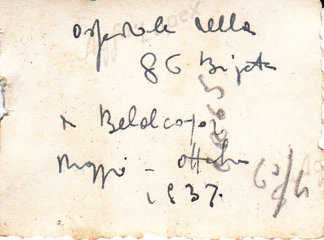 Ospedale della
86 Brigata
a Belalcazar
Maggio - Ottobre
1937.